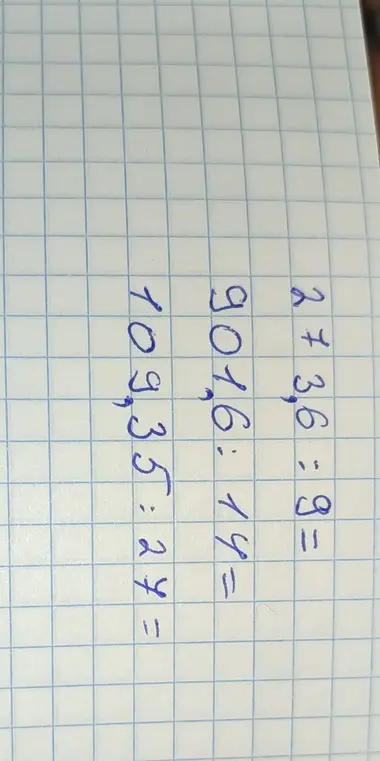 273,6 : 9 =
901,6 : 14 =
109,35 : 24 =